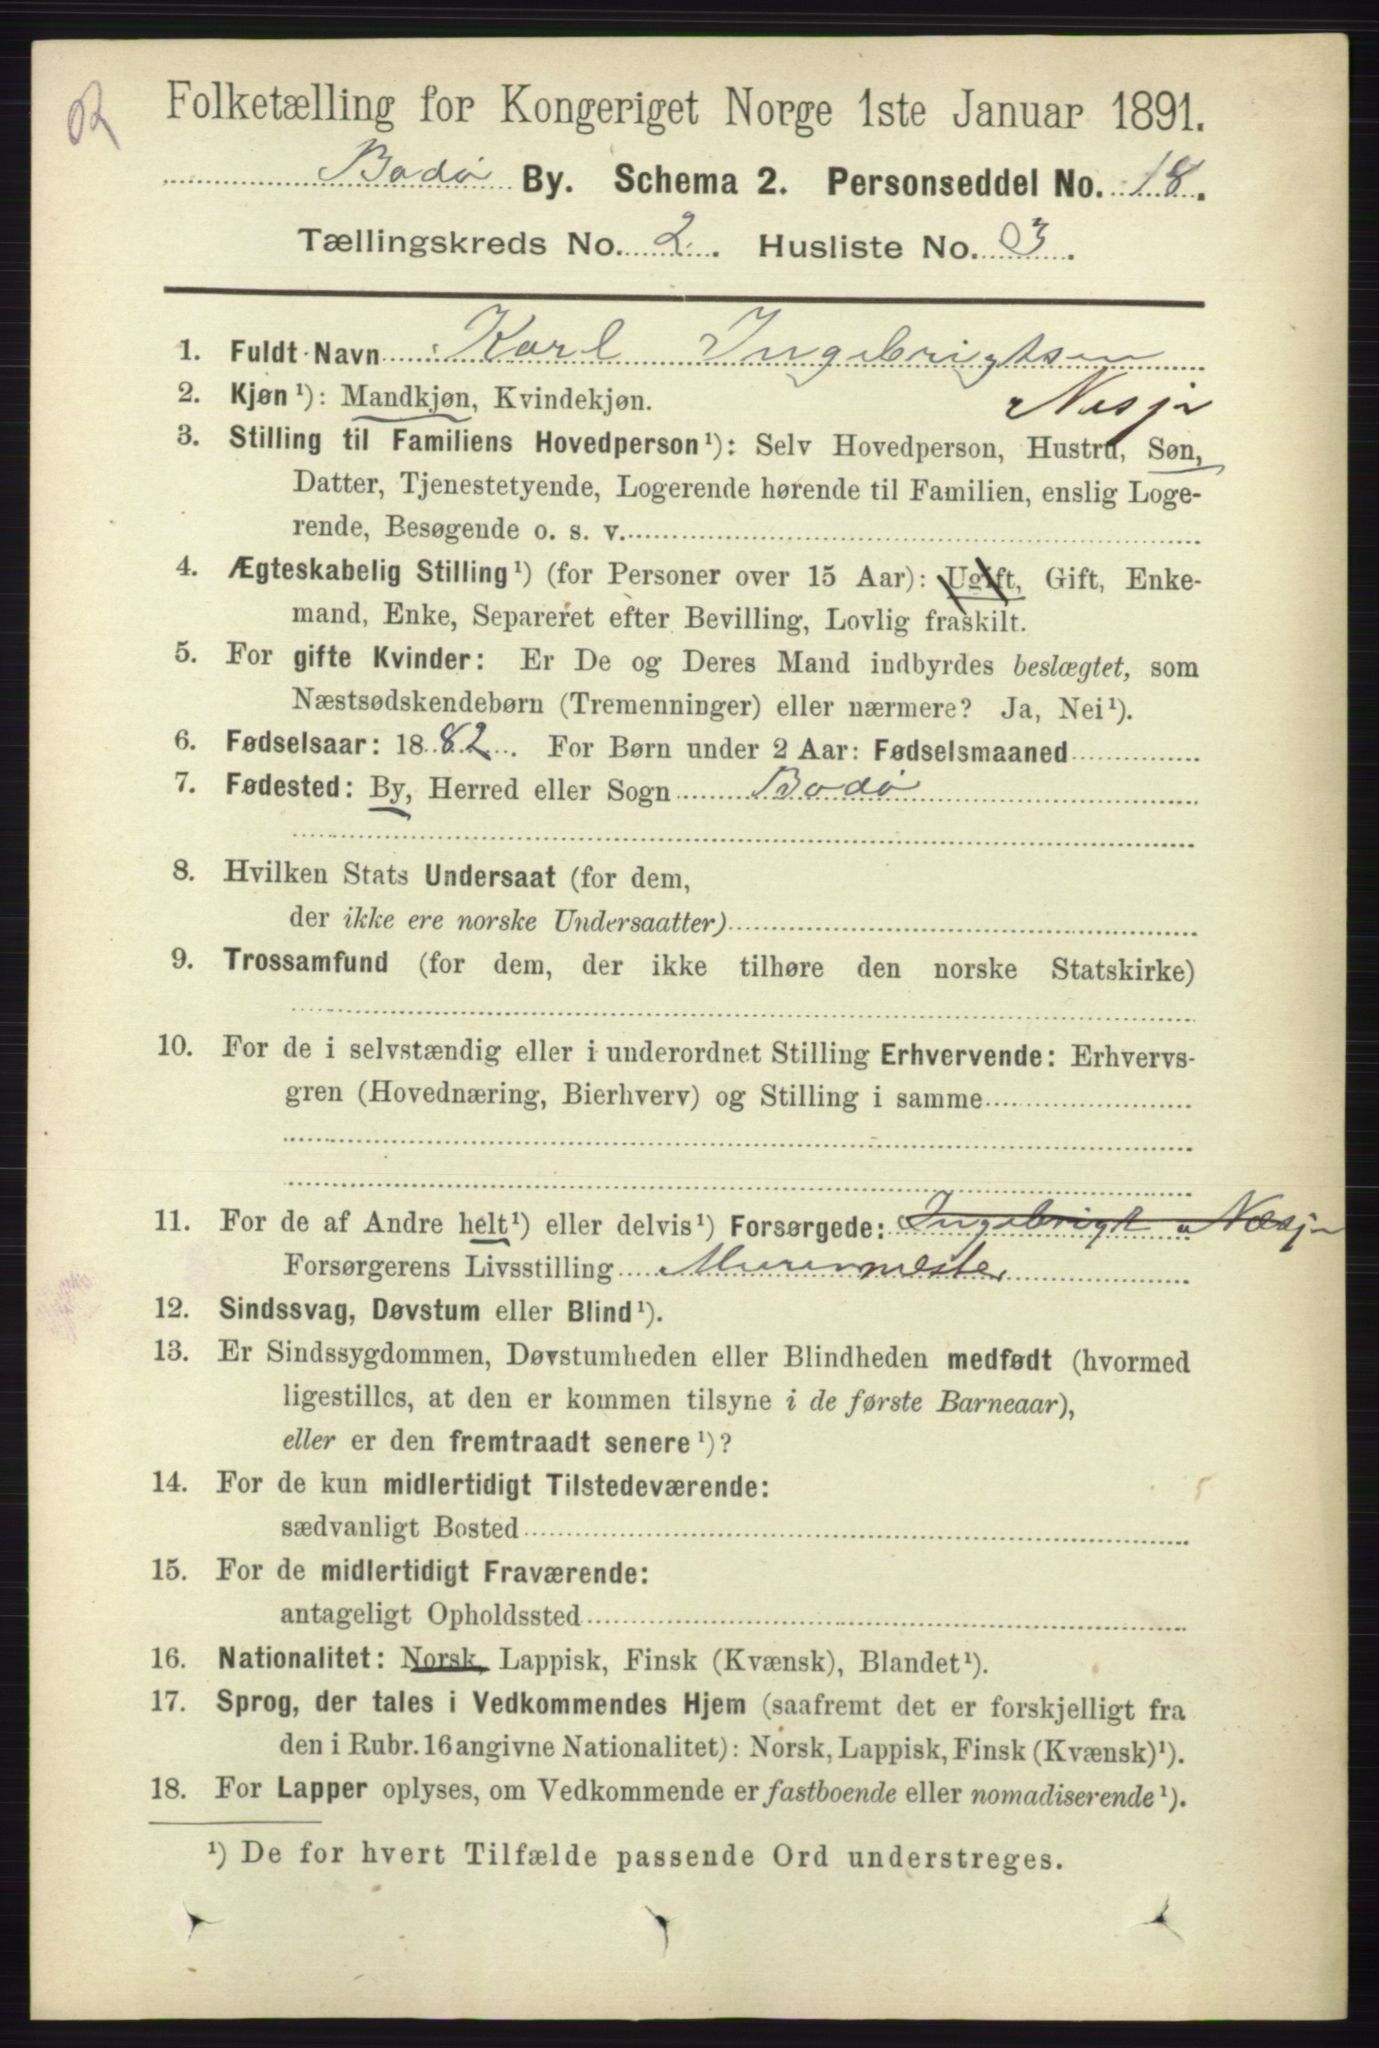 Folketælling for Kongeriget Norge 1ste Januar 1891.
Bodø By. Schema 2. Personseddel No. 18.
Tællingskreds No. 2. Husliste No. 03.
1. Fuldt Navn Karl Ingebrigtsen
Nesje
2. Kjøn¹): Mandkjøn, Kvindekjøn.
3. Stilling til Familiens Hovedperson¹): Selv Hovedperson, Hustru, Søn,
Datter, Tjenestetyende, Logerende hørende til Familien, enslig Loge-
rende, Besøgende o. s. v.
4. Ægteskabelig Stilling¹) (for Personer over 15 Aar): Ugift, Gift, Enke-
mand, Enke, Separeret efter Bevilling, Lovlig fraskilt.
5. For gifte Kvinder: Er De og Deres Mand indbyrdes beslægtet, som
Næstsødskendebørn (Tremenninger) eller nærmere? Ja, Nei¹).
6. Fødselsaar: 1882. For Børn under 2 Aar: Fødselsmaaned
7. Fødested: By, Herred eller Sogn Bodø
8. Hvilken Stats Undersaat (for dem,
der ikke ere norske Undersaatter)
9. Trossamfund (for dem, der ikke tilhøre den norske Statskirke)
10. For de i selvstændig eller i underordnet Stilling Erhvervende: Erhvervs-
gren (Hovednæring, Bierhverv) og Stilling i samme
11. For de af Andre helt¹) eller delvis¹) Forsørgede: Ingebrigt Næsje
Forsørgerens Livsstilling Murermester
12. Sindssvag, Døvstum eller Blind¹).
13. Er Sindssygdommen, Døvstumheden eller Blindheden medfødt (hvormed
ligestilles, at den er kommen tilsyne i de første Barneaar),
eller er den fremtraadt senere¹)?
14. For de kun midlertidigt Tilstedeværende:
sædvanligt Bosted
15. For de midlertidigt Fraværende:
antageligt Opholdssted
16. Nationalitet: Norsk, Lappisk, Finsk (Kvænsk), Blandet¹).
17. Sprog, der tales i Vedkommendes Hjem (saafremt det er forskjelligt fra
den i Rubr. 16 angivne Nationalitet): Norsk, Lappisk, Finsk (Kvænsk)¹).
18. For Lapper oplyses, om Vedkommende er fastboende eller nomadiserende¹).
¹) De for hvert Tilfælde passende Ord understreges.